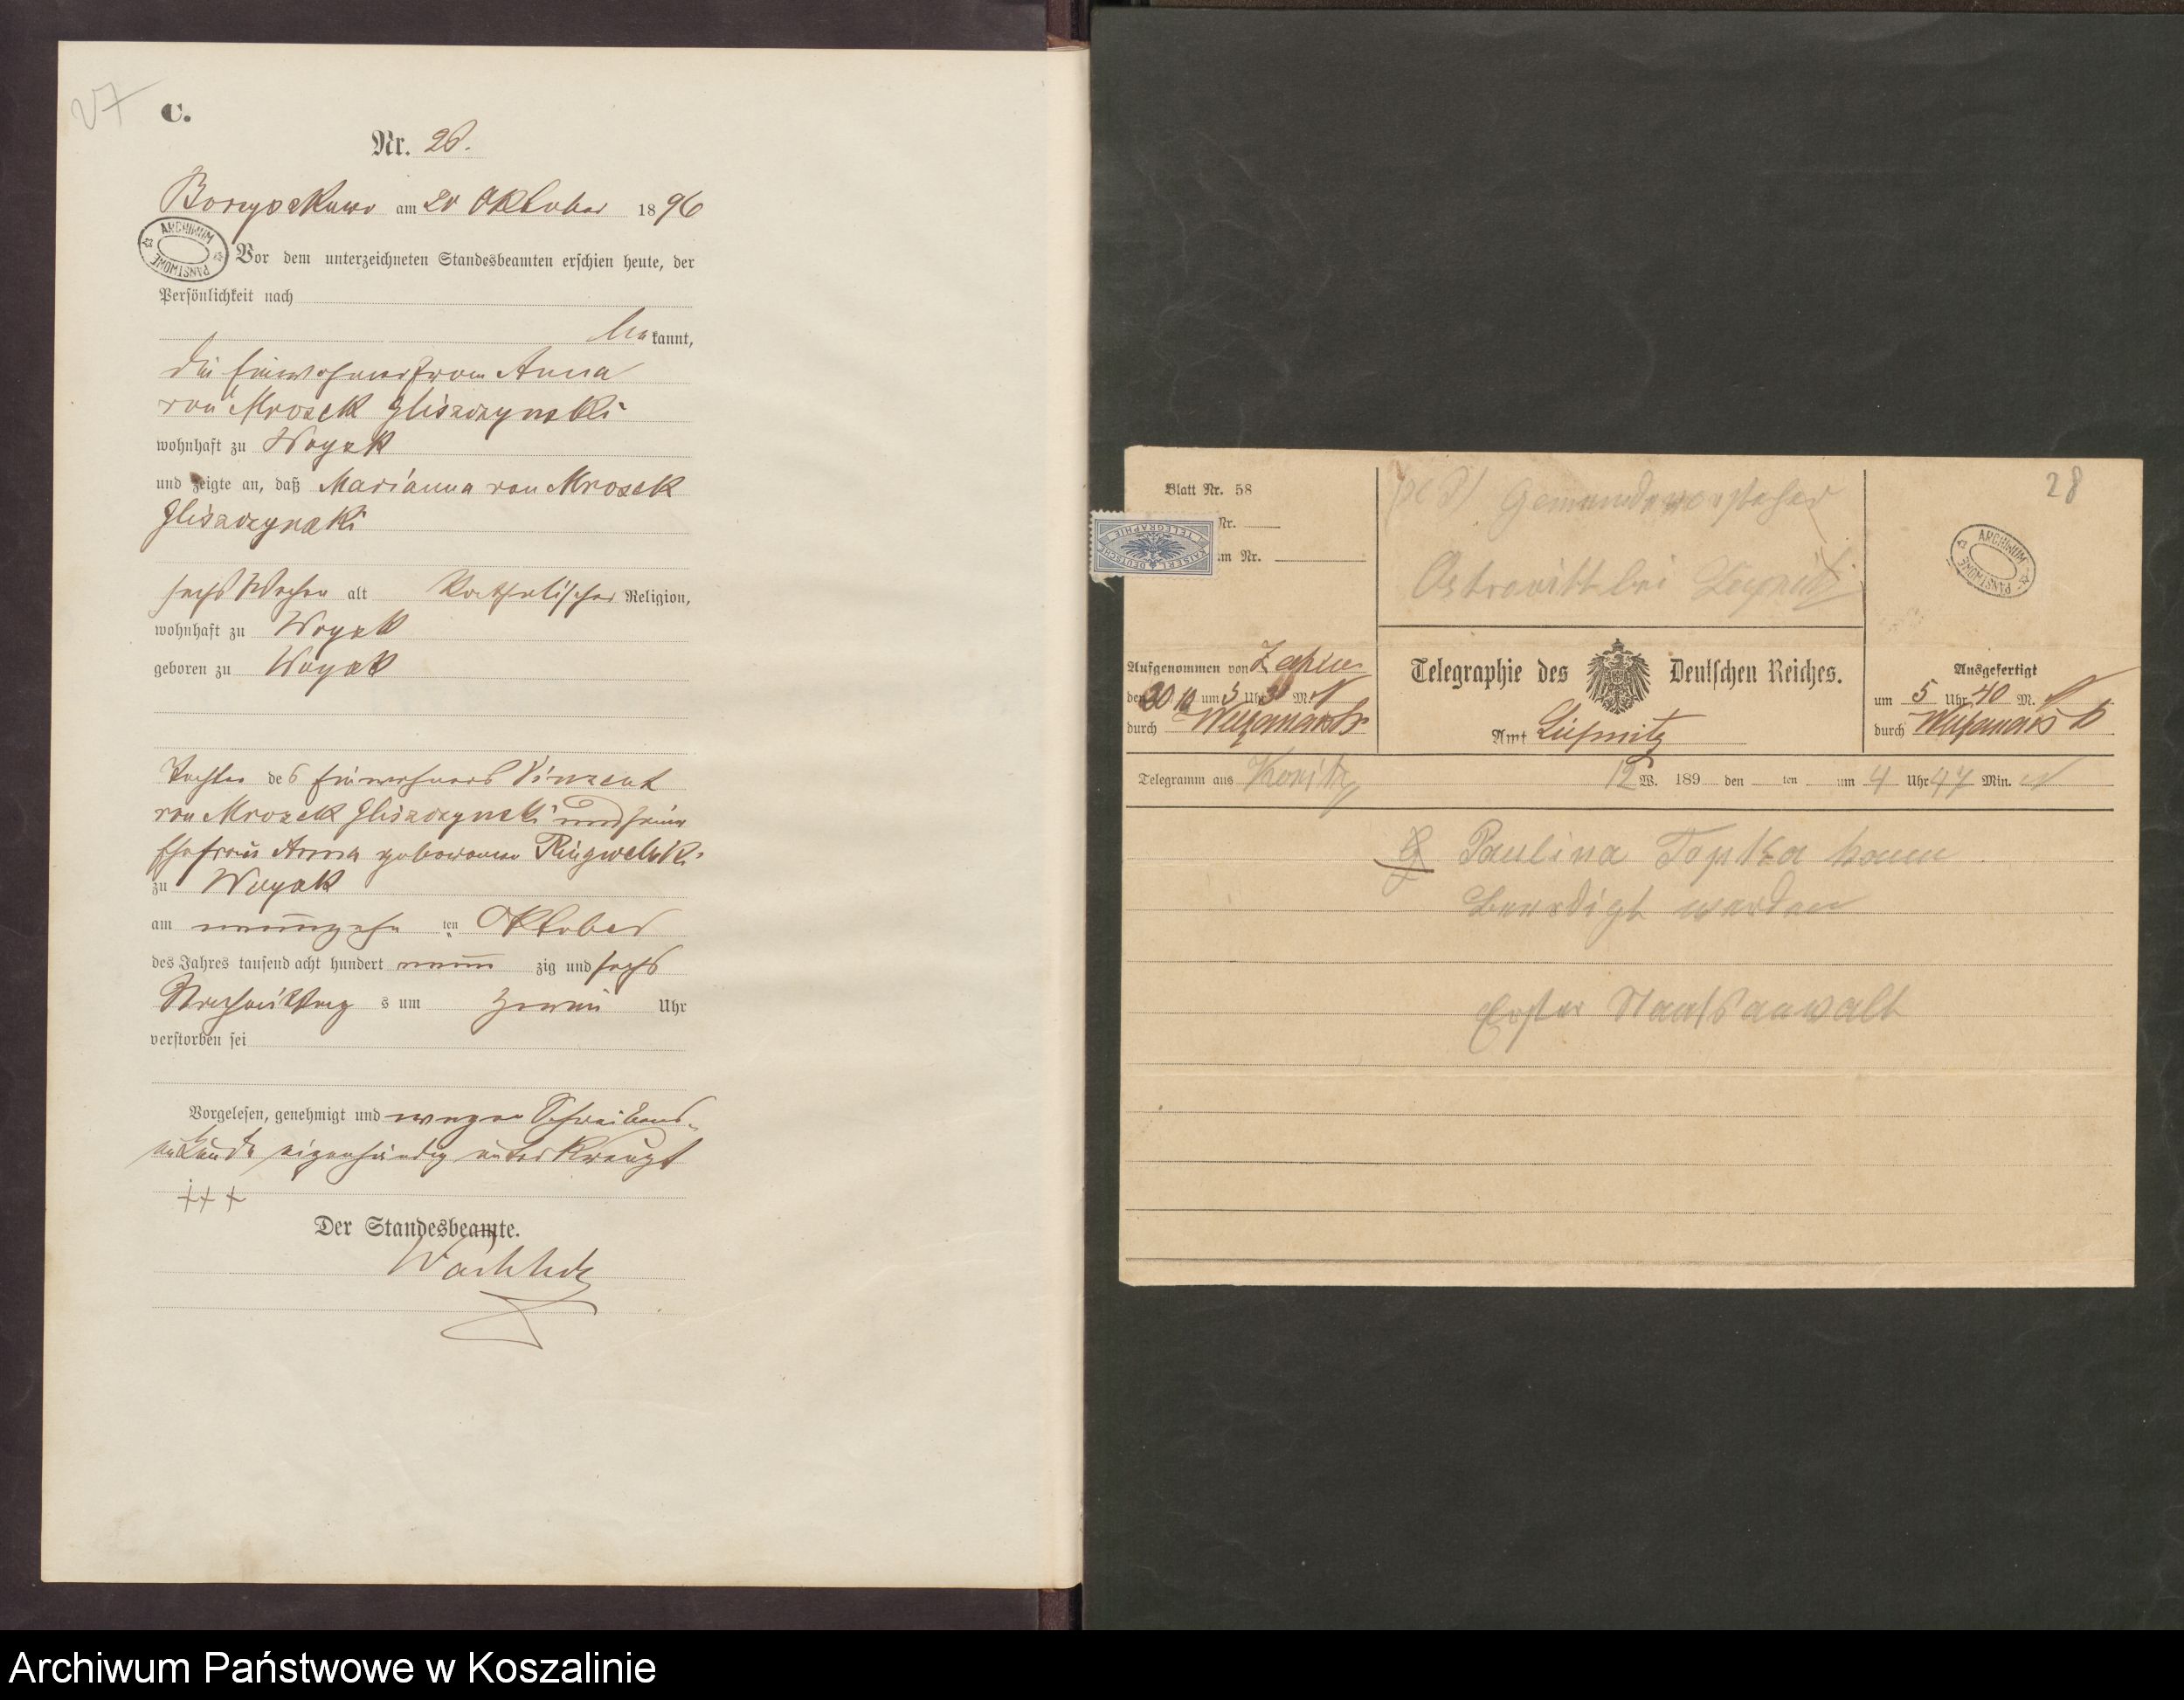 27
C.
Nr. 26.
Borzyskowo am 20 Oktober 1896
ARCHIWUM PAŃSTWOWE
Vor dem unterzeichneten Standesbeamten erschien heute, der
Persönlichkeit nach
be kannt,
die Einwohnerfrau Anna
von Mrozek Gliszczynski
wohnhaft zu Woysk
und zeigte an, daß Marianna von Mrozek
Gliszczynski
sechs Wochen alt katholischer Religion,
wohnhaft zu Woysk
geboren zu Woysk
Tochter des Einwohners Vinzent
von Mrozek Gliszczynski und seiner
Ehefrau Anna geborenen Ringwelski
zu Woysk
am neunzehn ten Oktober
des Jahres tausend acht hundert neun zig und sechs
Nachmittag s um zwei Uhr
verstorben sei
Vorgelesen, genehmigt und wegen Schreibens-
unkunde eigenhändig unterkreuzt
+++
Der Standesbeamte.
Blatt Nr. 58
Nr.
m Nr.
KAISERL. DEUTSCHE TELEGRAPHIE
Gemeindevorsteher
Ostrowitt bei
28
ARCHIWUM PAŃSTWOWE
Aufgenommen von
den 20/10 um 5 Uhr M. N
durch
Telegraphie des Deutschen Reiches.
Amt Liepnitz
Ausgefertigt
um 5 Uhr 40 M. N
durch
Telegramm aus Konitz 12 W. 189 den ten um 4 Uhr 47 Min. N
Paulina Topka kann
beerdigt werden
Erster Staatsanwalt
Archiwum Państwowe w Koszalinie